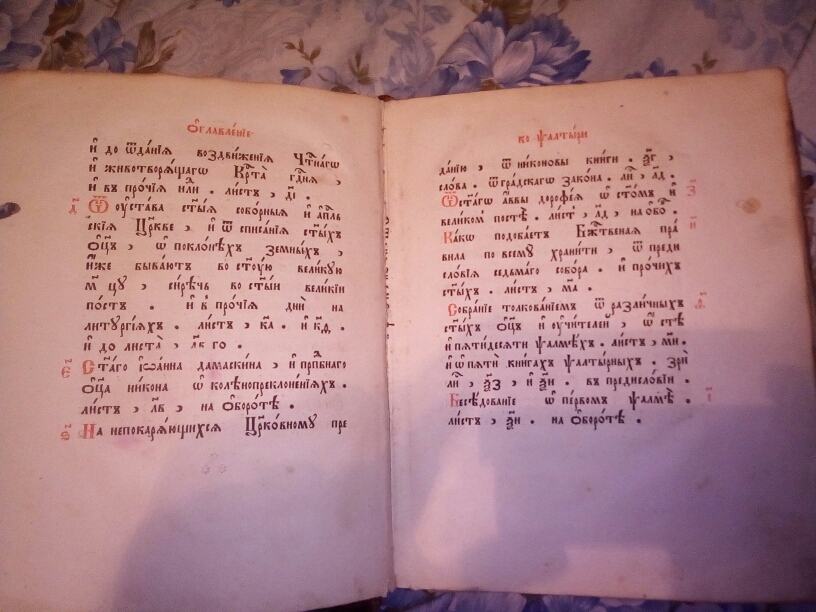 Ѻ҆главле́нїе
и҆ до ѿда́нїѧ воздви́женїѧ Чⷭ҇тна́гѡ
и҆ животворѧ́щагѡ Крⷭ҇та̀ гдⷭ҇нѧ ,
и҆ въ про́чїѧ лист̾ , д҃і .
д҃ Ѿ оу҆ста́ва ст҃ы́ѧ собо́рныѧ и҆ а҆пⷭ҇ль
скїѧ Цр҃кве , и҆ ѿ списа́нїѧ ст҃ы́хъ
ѻ҆ц҃ъ , ѡ҆ покло́нѣхъ земны́хъ ,
и҆́же быва́ютъ во ст҃у́ю вели́кую
м҃ цу , си́рѣчь во ст҃ы́и вели́кїи
по́стъ . и҆ в про́чїѧ дни̑ на
литургі́ѧхъ . ли́стъ , к҃а . и҆ к҃д .
и҆ до листа̀ , л҃к го .
є҃ Ст҃а́го і҆ѡа́нна дамаски́на , и҆ прпⷣбнаго
ѻ҆ц҃а̀ ни́кона ѡ҆ колѣнопреклоне́нїихъ .
ли́стъ , л҃в , на ѻ҆боро́тѣ .
ѕ҃ На непокарѧ́ющихсѧ Цр҃ко́вному пре
ко ѱалты́ри
да́нїю , ѿ ни́коновы кни́ги .
сло́ва . ѿ гра́дскагѡ зако́на . л҃и , л҃д .
з҃ Ѿ ст҃а́гѡ а҆́ввы дороѳе́ѧ ѡ҆ ст҃о́мъ и҆
вели́комъ постѣ̀ . ли́ст , л҃д , на ѻ҆бо́ .
и҃ Ка́кѡ подоба́етъ Бж҃е́ственаѧ пра́
вила по всему̀ храни́ти , ѿ преди
сло́вїѧ седьма́го собо́ра . и҆ про́чихъ
ст҃ы́хъ . ли́стъ , м҃а .
ѳ҃ Собра́нїе толкова́нїемъ ѿ разли́чныхъ
ст҃ы́хъ ѻ҆ц҃ъ и҆ оу҆чи́телеи , ѡ҆ стѣ̀
и҆ пѧти́десѧти ѱалмѣ́хъ . ли́стъ , м҃и .
и҆ ѡ҆ пѧтѝ кни́гахъ ѱалты́рныхъ . зрѝ
въ предисло́вїи .
і҃ Бесѣ́дованїе ѡ҆ пе́рвомъ ѱалмѣ̀ .
ли́стъ , на ѻ҆боро́тѣ .